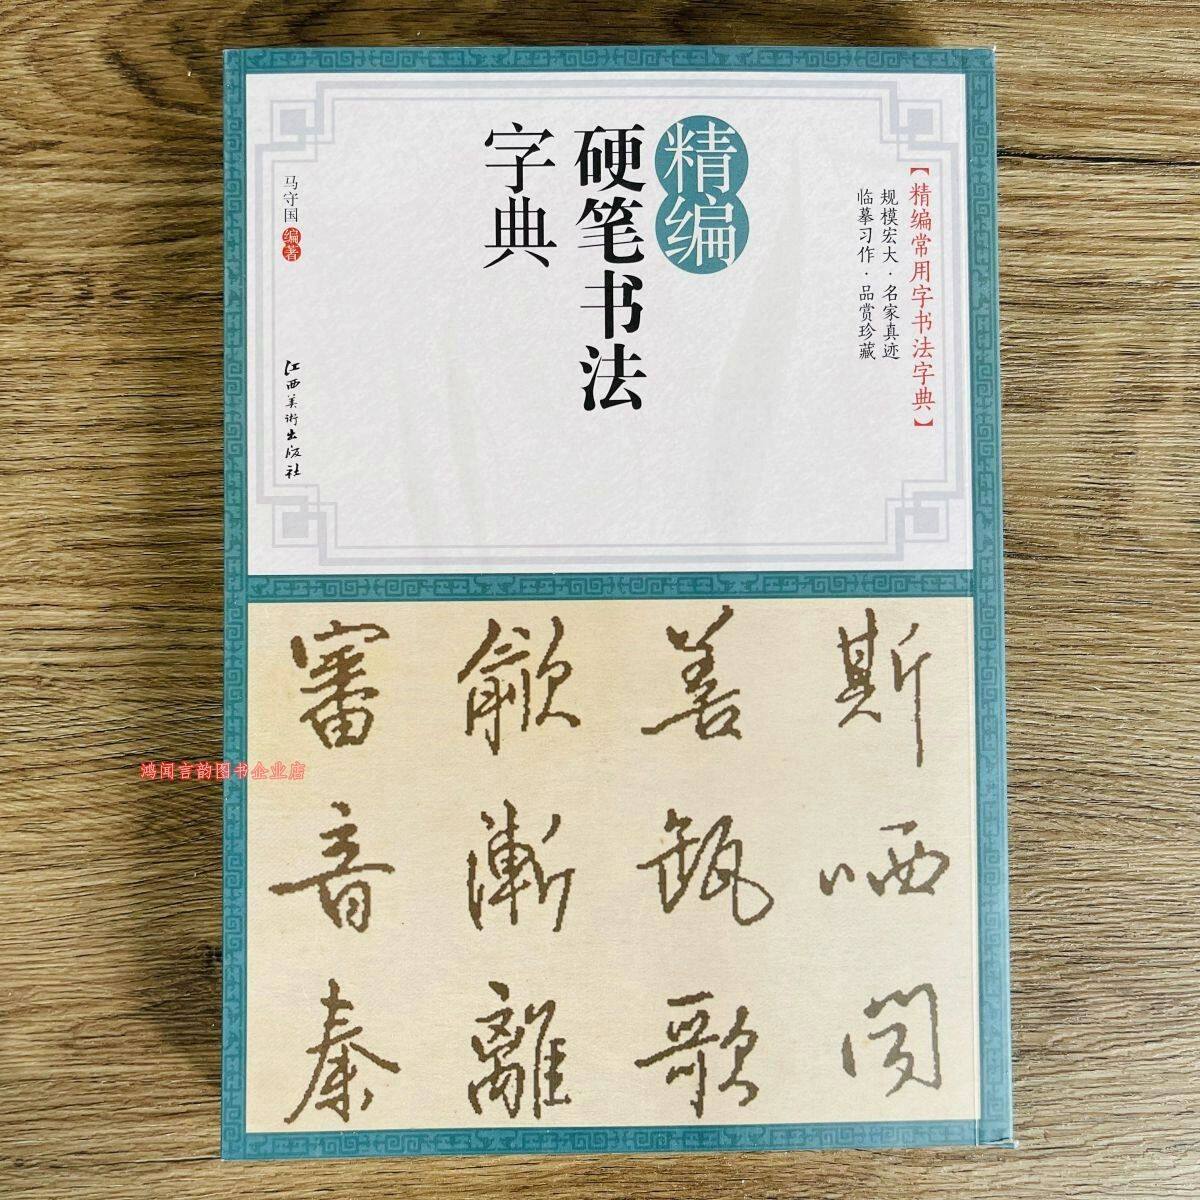 【精编常用字书法字典】
规模宏大·名家真迹
临摹习作·品赏珍藏
精编
硬笔书法
字典
马守国 编著
江西美术出版社
斯哂阅
善甑歌
歙漸離
審音秦
鸿闻言韵图书企业店